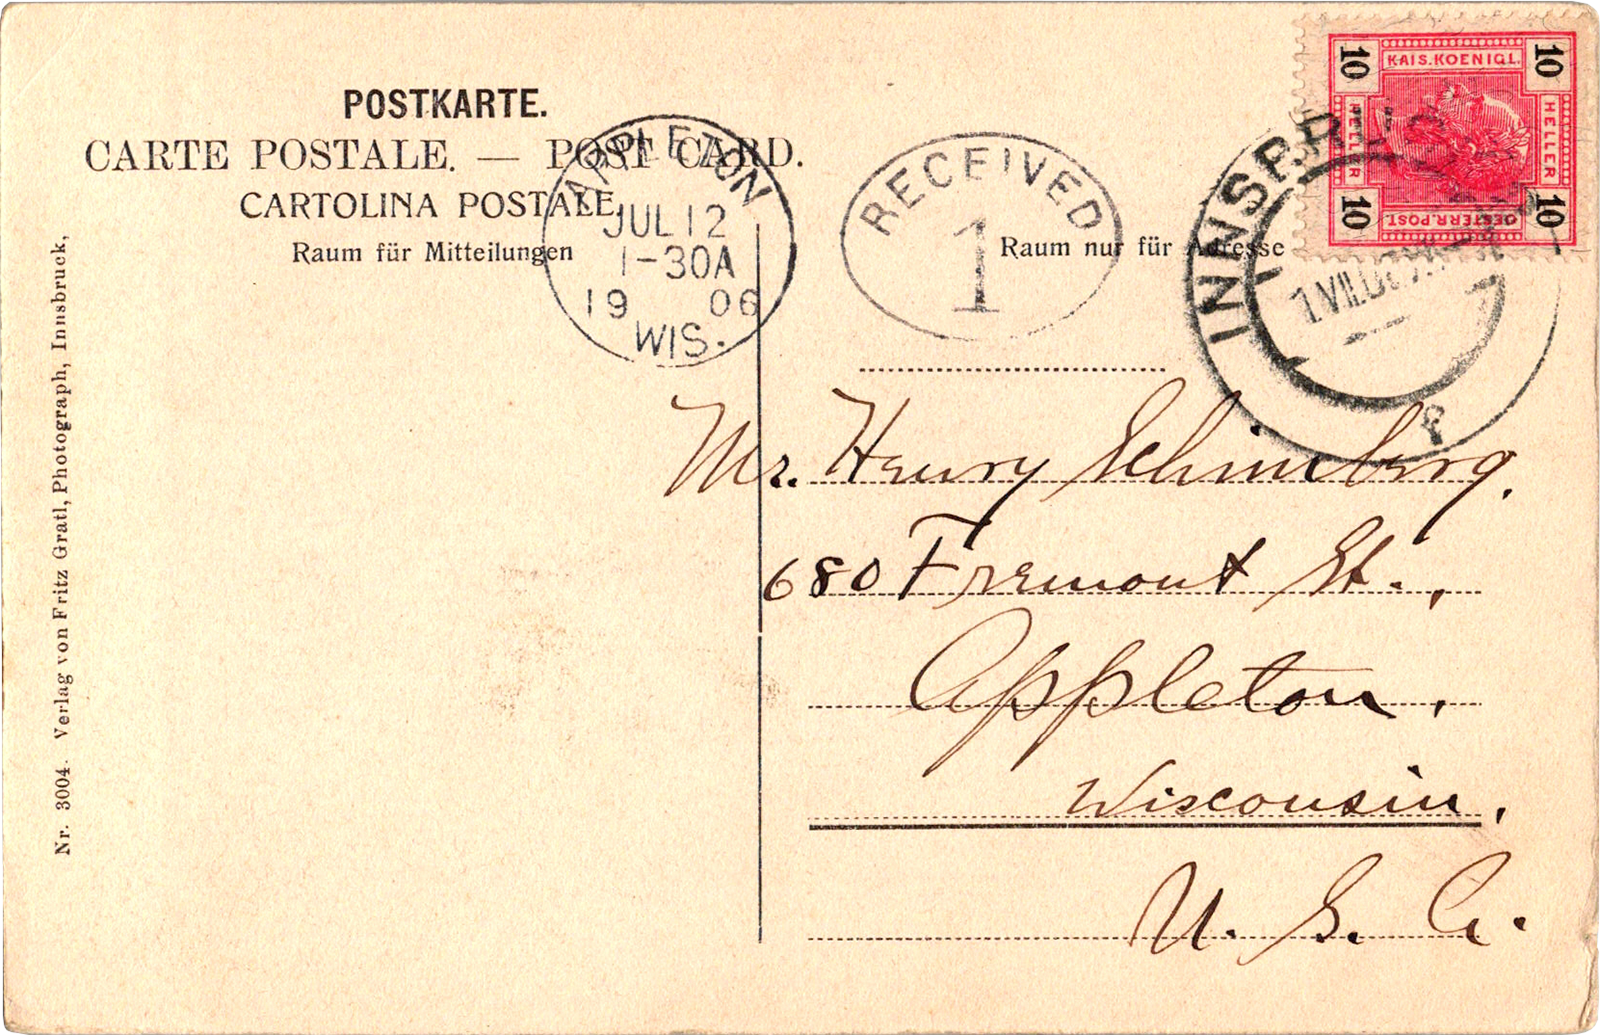 POSTKARTE.
CARTE POSTALE. — POST CARD.
CARTOLINA POSTALE
Raum für Mitteilungen
Raum nur für Adresse
APPLETON
JUL 12
1-30A
19 06
WIS.
RECEIVED
1
KAIS. KOENIGL.
OESTERR. POST
HELLER
HELLER
10
10
10
10
Mr. Henry Schimberg.
680 Fremont St.,
Appleton,
Wisconsin,
U. S. A.
Nr. 3004. Verlag von Fritz Gratl, Photograph, Innsbruck,